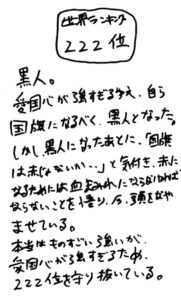 世界ランキング
222位
黒人。
愛国心が強すぎるゆえ、自ら
国旗になるべく、黒人となった。
しかし黒人になったあとに、「国旗
は赤じゃないか・・」と気付き、赤に
なるためには血まみれにならなければ
ならないことを悟り、今、頭をなや
ませている。
本当はものすごい強いが、
愛国心が強すぎるため、
222位を守り抜いている。